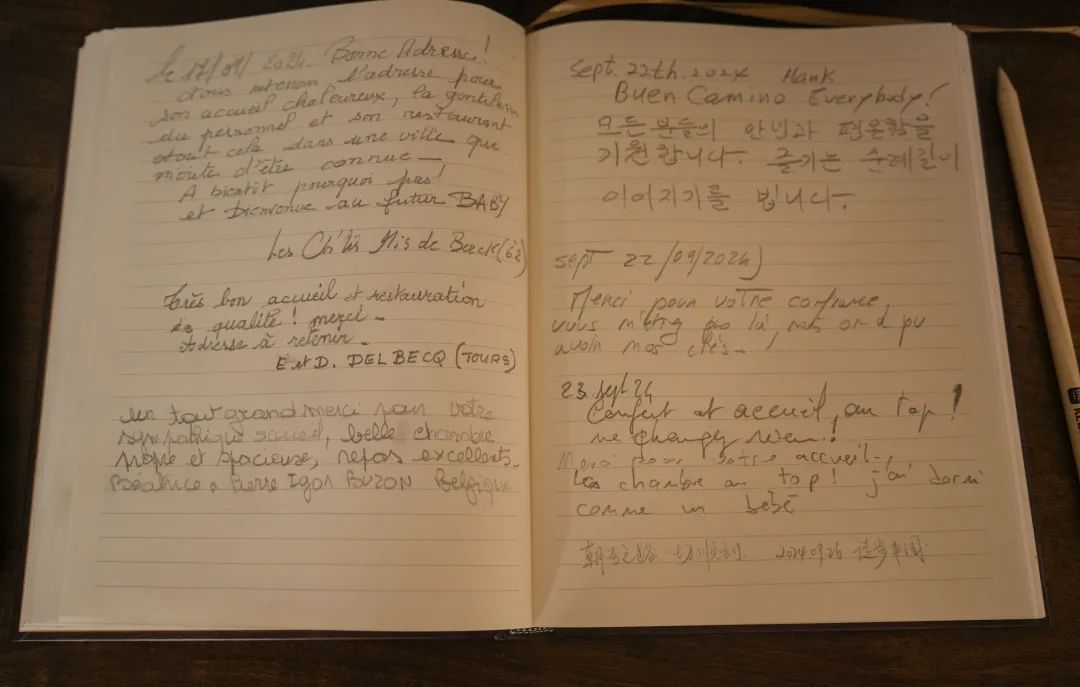 le 17/09/2024. Bonne Adresse!
Nous retenons l'adresse pour
son accueil chaleureux, la gentillesse
du personnel et son restaurant
tout cela dans une ville qui
mérite d'être connue—
A bientôt pourquoi pas!
et bienvenue au futur BABY
Les Ch'tis Mis de Berck (62)
Très bon accueil et restauration
de qualité! merci-
Adresse à retenir.-
E et D. DELBECQ (TOURS)
Un tout grand merci pour votre
sympathique accueil, belle chambre
propre et spacieuse, repas excellents.
Béatrice & Pierre Igor BUZON Belgique
Sept. 22th. 2024 Hank
Buen Camino Everybody!
모든 분들의 안녕과 평온함을
기원합니다. 즐기는 순례길이
이어지기를 빕니다.
sept 22/09/2024)
Merci pour votre confiance,
vous n'étiez pas là, mais on a pu
avoir nos clés-!
23 sept 24
Confort et accueil, au top!
ne changez rien!
Merci pour votre accueil-,
La chambre au top! j'ai dormi
comme un bébé
朝圣之路 一切顺利. 2024.09.26 徒步中国